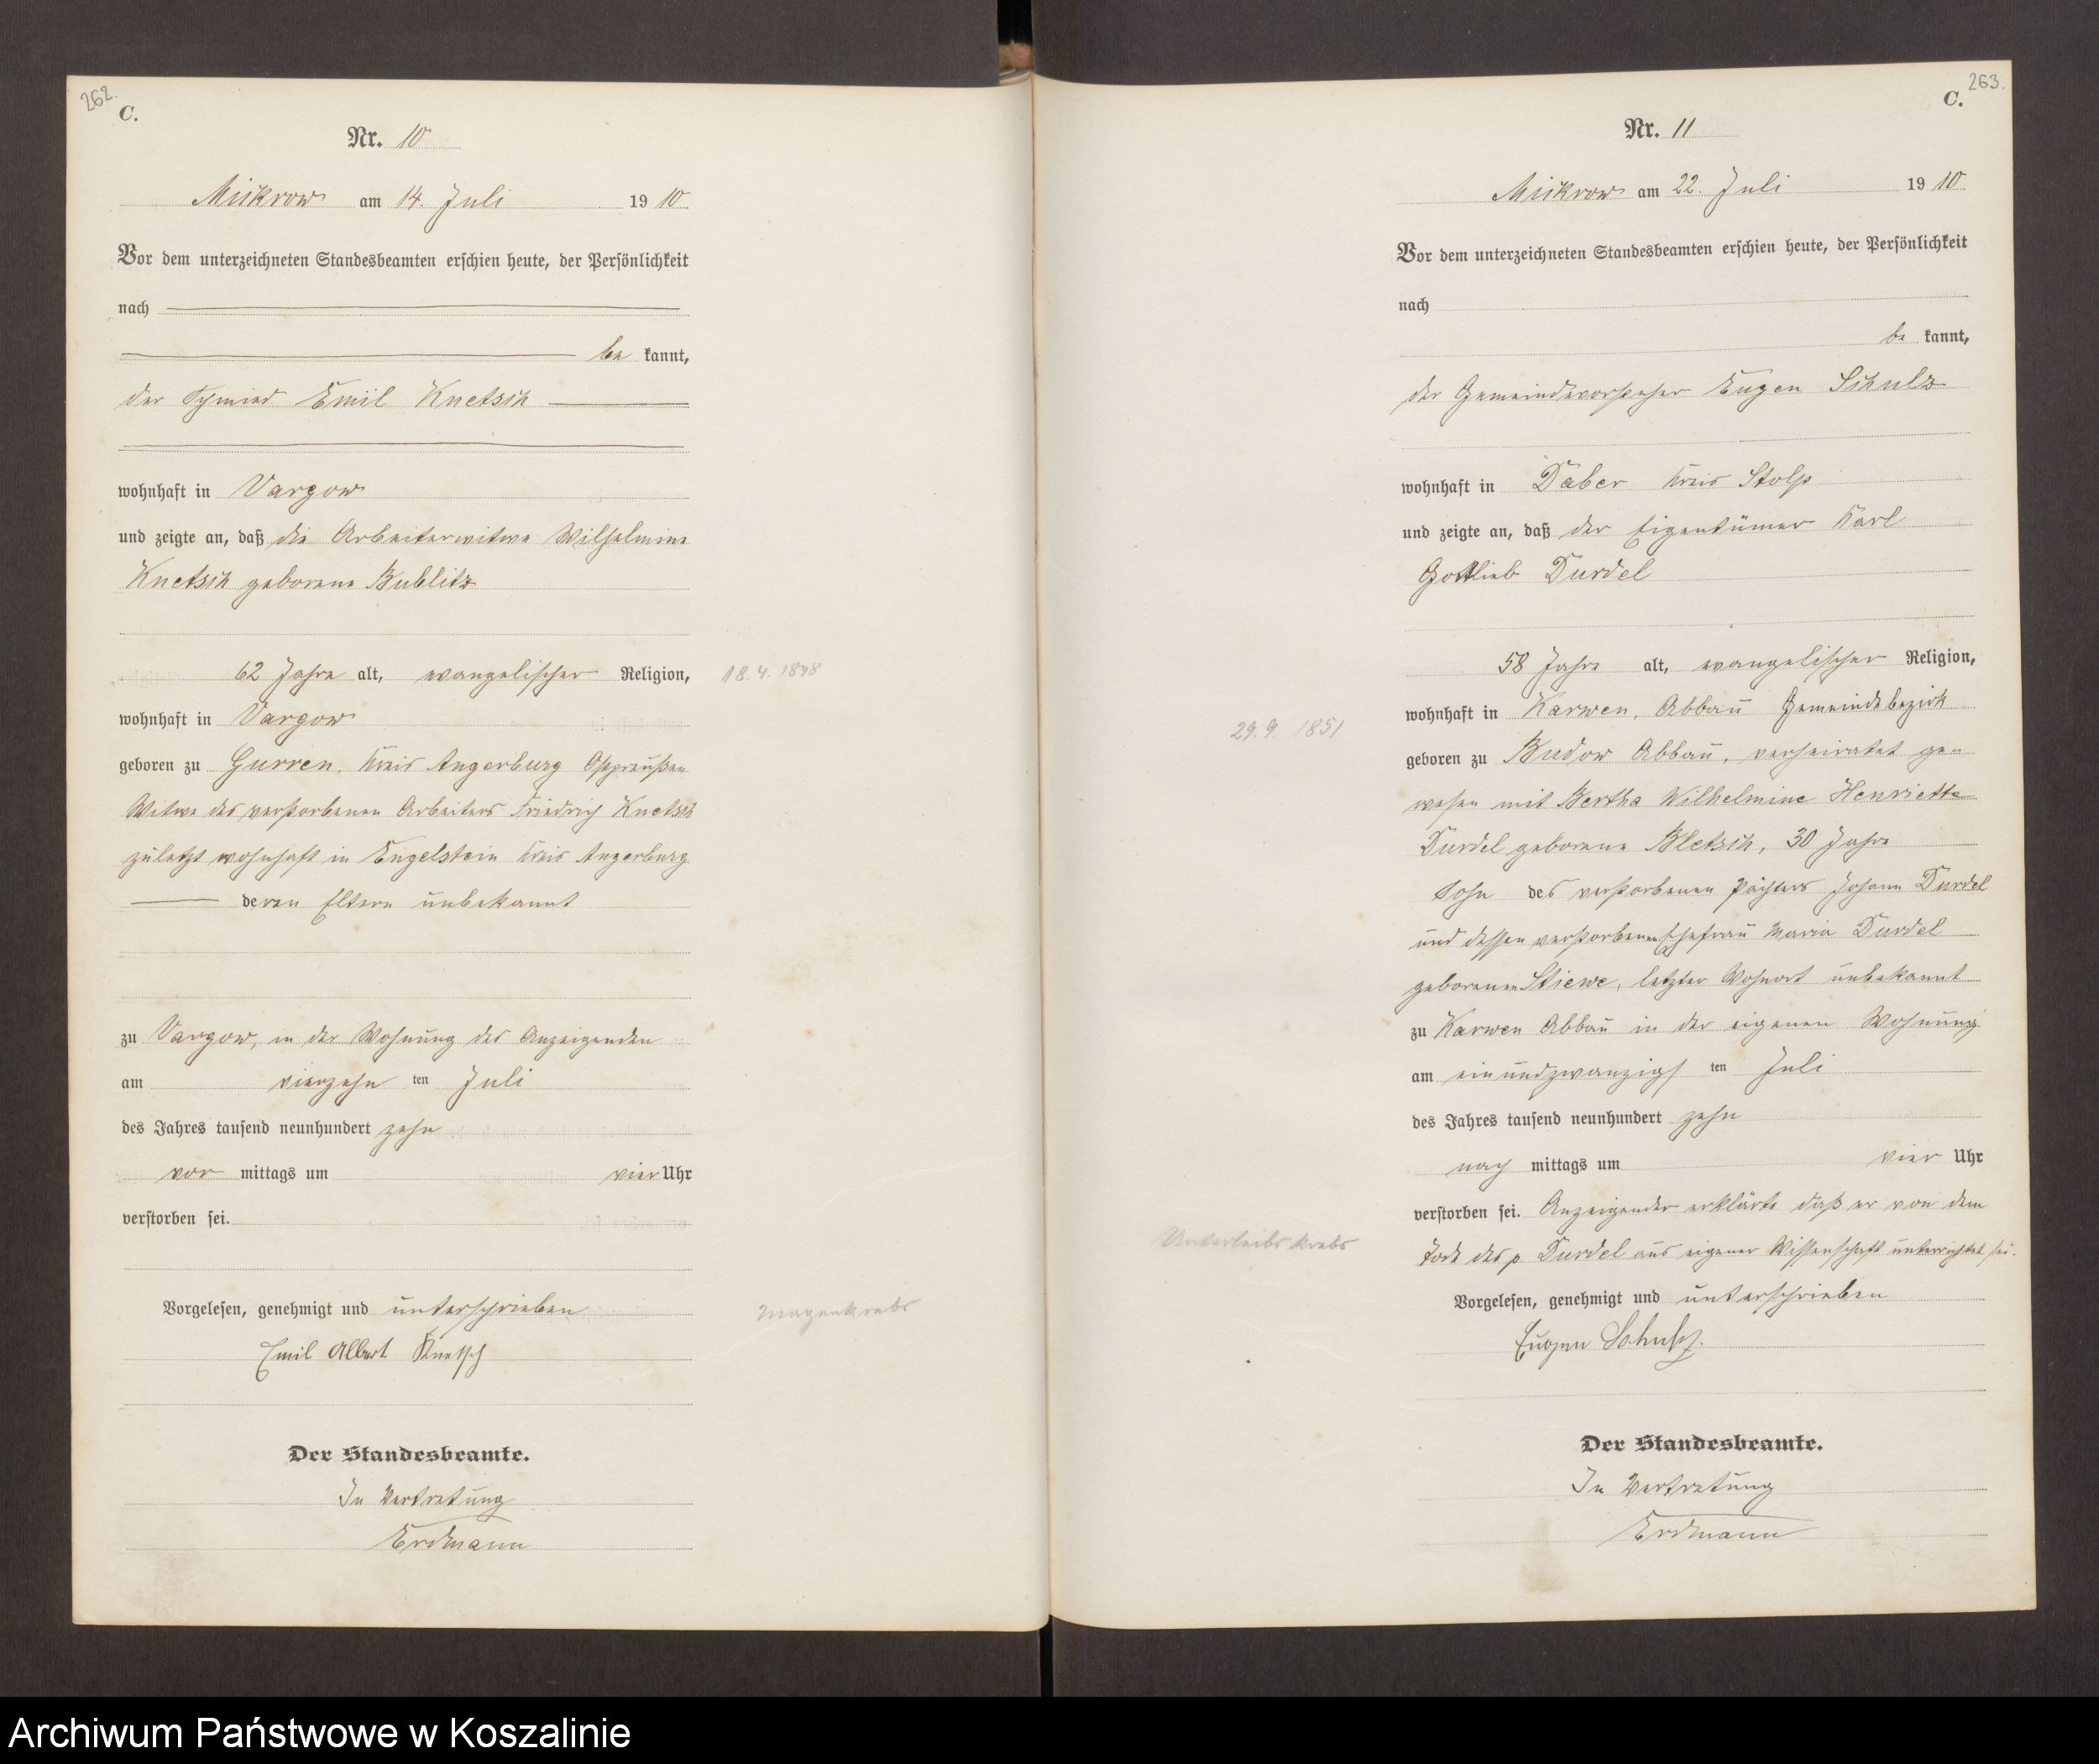 262.
C.
Nr. 10
Mickrow am 14. Juli 1910
Vor dem unterzeichneten Standesbeamten erschien heute, der Persönlichkeit
nach
be kannt,
der Schmied Emil Knetsch
wohnhaft in Vargow
und zeigte an, daß die Arbeiterwitwe Wilhelmine
Knetsch geborene Bublitz
62 Jahre alt, evangelischer Religion,
18.4.1848
wohnhaft in Vargow
geboren zu Gurren, Kreis Angerburg Ostpreußen
Witwe des verstorbenen Arbeiters Friedrich Knetsch
zuletzt wohnhaft in Engelstein Kreis Angerburg
deren Eltern unbekannt
zu Vargow, in der Wohnung des Anzeigenden
am vierzehn ten Juli
des Jahres tausend neunhundert zehn
vor mittags um vier Uhr
verstorben sei.
Vorgelesen, genehmigt und unterschrieben
Magenkrebs
Emil Albert Knetsch
Der Standesbeamte.
In Vertretung
Erdmann
263.
C.
Nr. 11
Mickrow am 22. Juli 1910
Vor dem unterzeichneten Standesbeamten erschien heute, der Persönlichkeit
nach
be kannt,
der Gemeindevorsteher Eugen Schulz
wohnhaft in Daber Kreis Stolp
und zeigte an, daß der Eigentümer Karl
Gottlieb Durdel
58 Jahre alt, evangelischer Religion,
wohnhaft in Karwen, Abbau Gemeindebezirk
29.9.1851
geboren zu Budow Abbau, verheiratet ge-
wesen mit Bertha Wilhelmine Henriette
Durdel geborene Bletsch, 30 Jahre
Sohn des verstorbenen Pächters Johann Durdel
und dessen verstorbenen Ehefrau Maria Durdel
geborenen Stiewe, letzter Wohnort unbekannt
zu Karwen Abbau in der eigenen Wohnung
am einundzwanzigs ten Juli
des Jahres tausend neunhundert zehn
nach mittags um vier Uhr
verstorben sei. Anzeigender erklärte daß er von dem
Unterleibs krebs
Tode des p Durdel aus eigener Wissenschaft unterrichtet sei.
Vorgelesen, genehmigt und unterschrieben
Eugen Schulz.
Der Standesbeamte.
In Vertretung
Erdmann
Archiwum Państwowe w Koszalinie